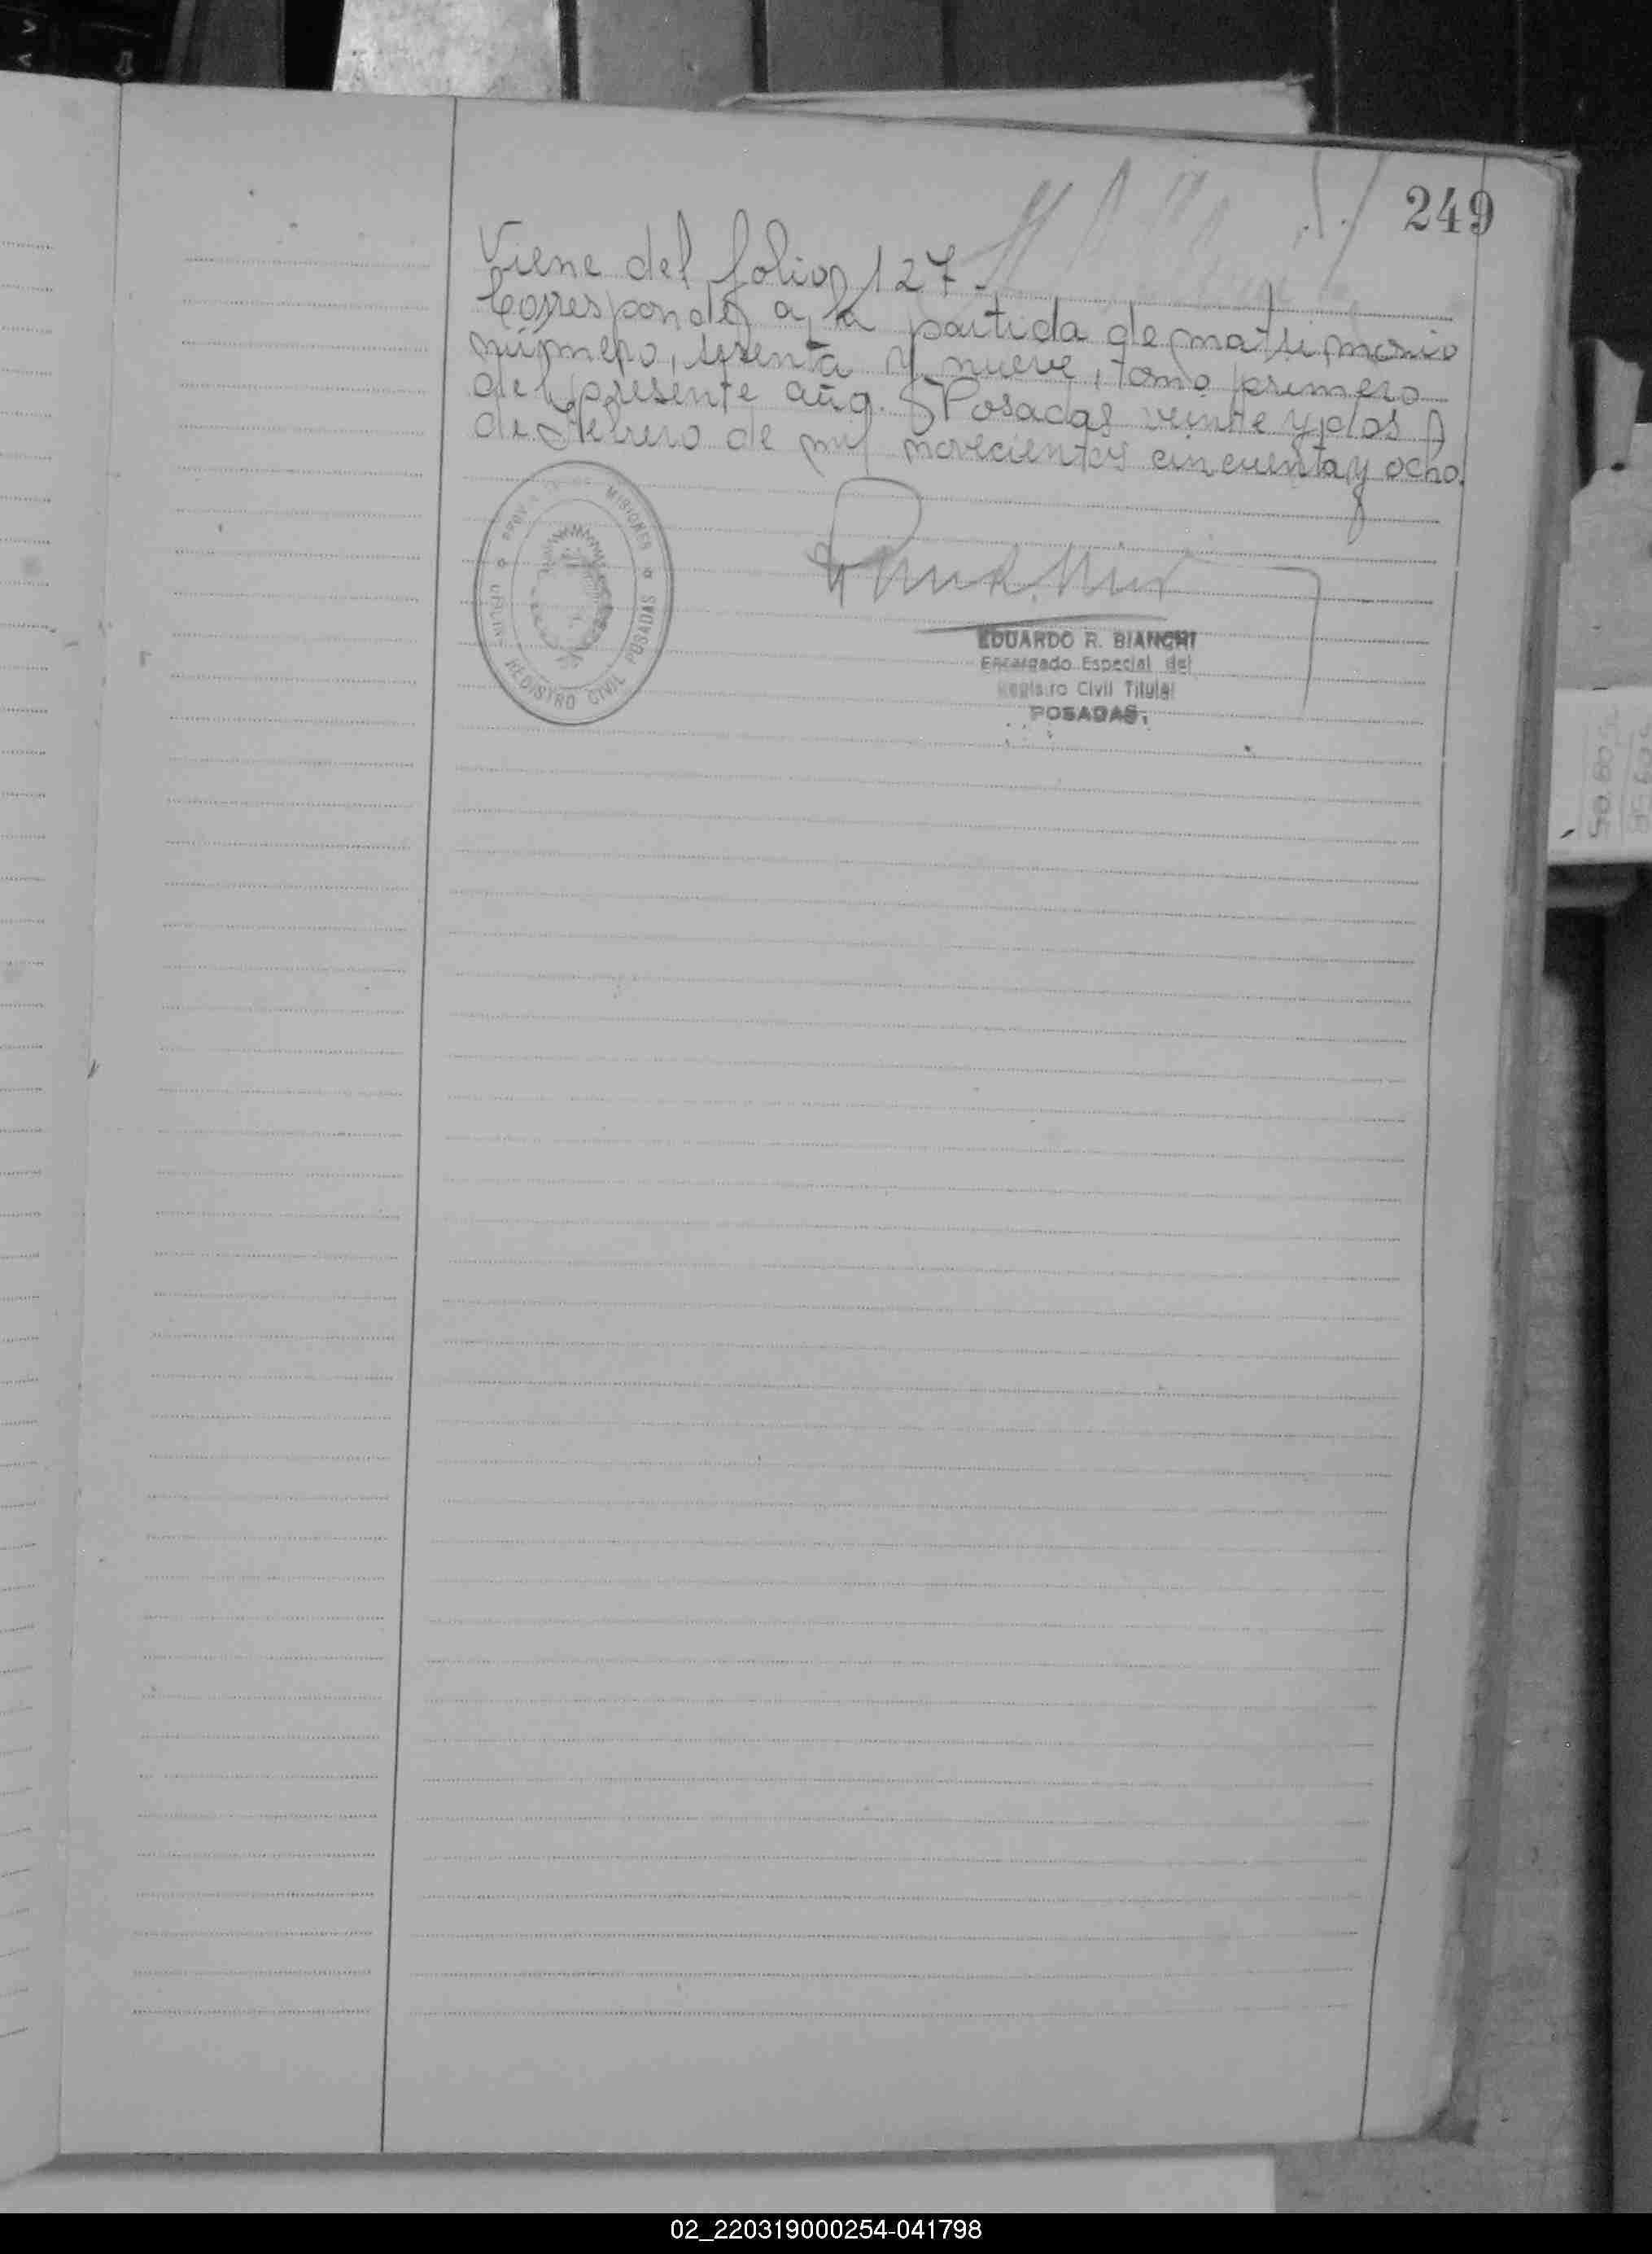 249
Viene del folio 127.
Corresponde a la partida de matrimonio
número, sesenta y nueve, tomo primero
del presente año. Posadas veinte y dos
de Febrero de mil novecientos cincuenta y ocho.
MISIONES
REGISTRO CIVIL POSADAS
EDUARDO R. BIANCHI
Encargado Especial del
Registro Civil Titular
POSADAS
02_220319000254-041798